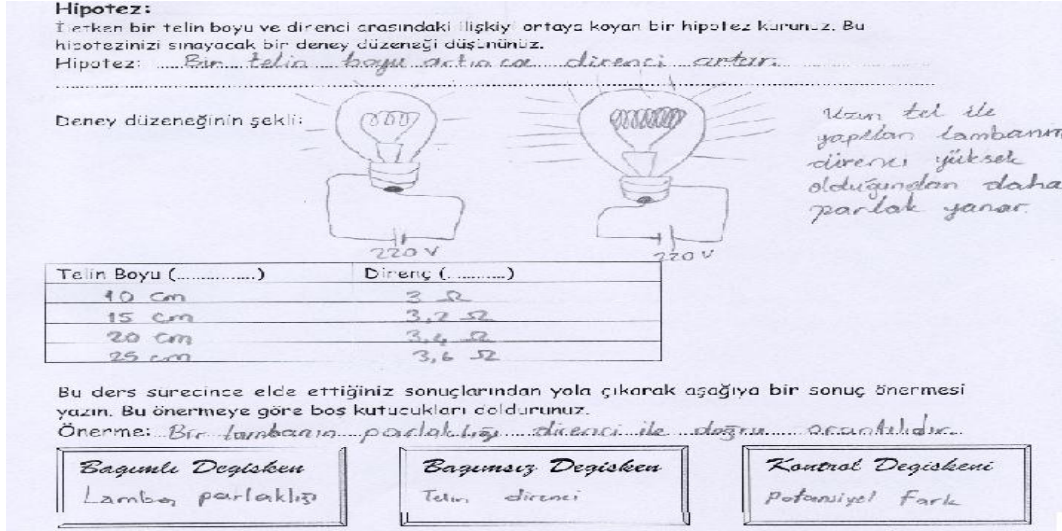 Hipotez:
İletken bir telin boyu ve direnci arasındaki ilişkiyi ortaya koyan bir hipotez kurunuz. Bu
hipotezinizi sınayacak bir deney düzeneği düşününüz.
Hipotez: Bir telin boyu artınca direnci artar.
Deney düzeneğinin şekli:
Uzun tel ile
yapılan lambanın
direnci yüksek
olduğundan daha
parlak yanar.
220 V
220 V
Telin Boyu (..............) Direnç (...........)
10 cm 3 Ω
15 cm 3,2 Ω
20 cm 3,4 Ω
25 cm 3,6 Ω
Bu ders sürecince elde ettiğiniz sonuçlarından yola çıkarak aşağıya bir sonuç önermesi
yazın. Bu önermeye göre boş kutucukları doldurunuz.
Önerme: Bir lambanın parlaklığı direnci ile doğru orantılıdır.
Bagımlı Degisken Bagımsız Degisken Kontrol Degiskeni
Lamba parlaklığı Telin direnci Potansiyel Fark